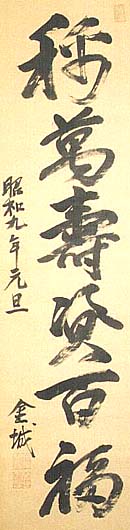 稱萬壽資百福
昭和九年元旦
金城